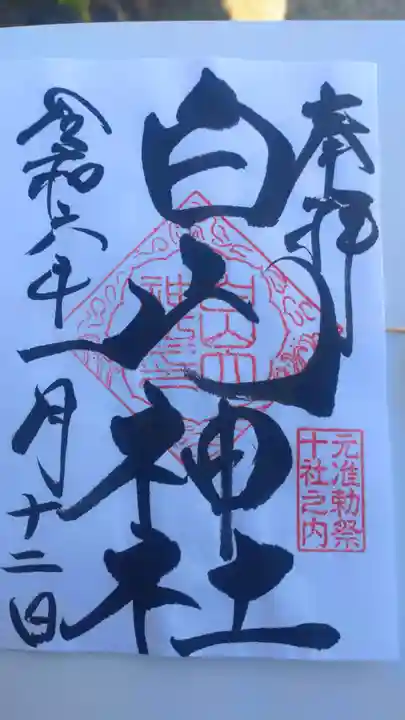 奉拝
元准勅祭
十社之内
白山神社
令和六年一月十二日